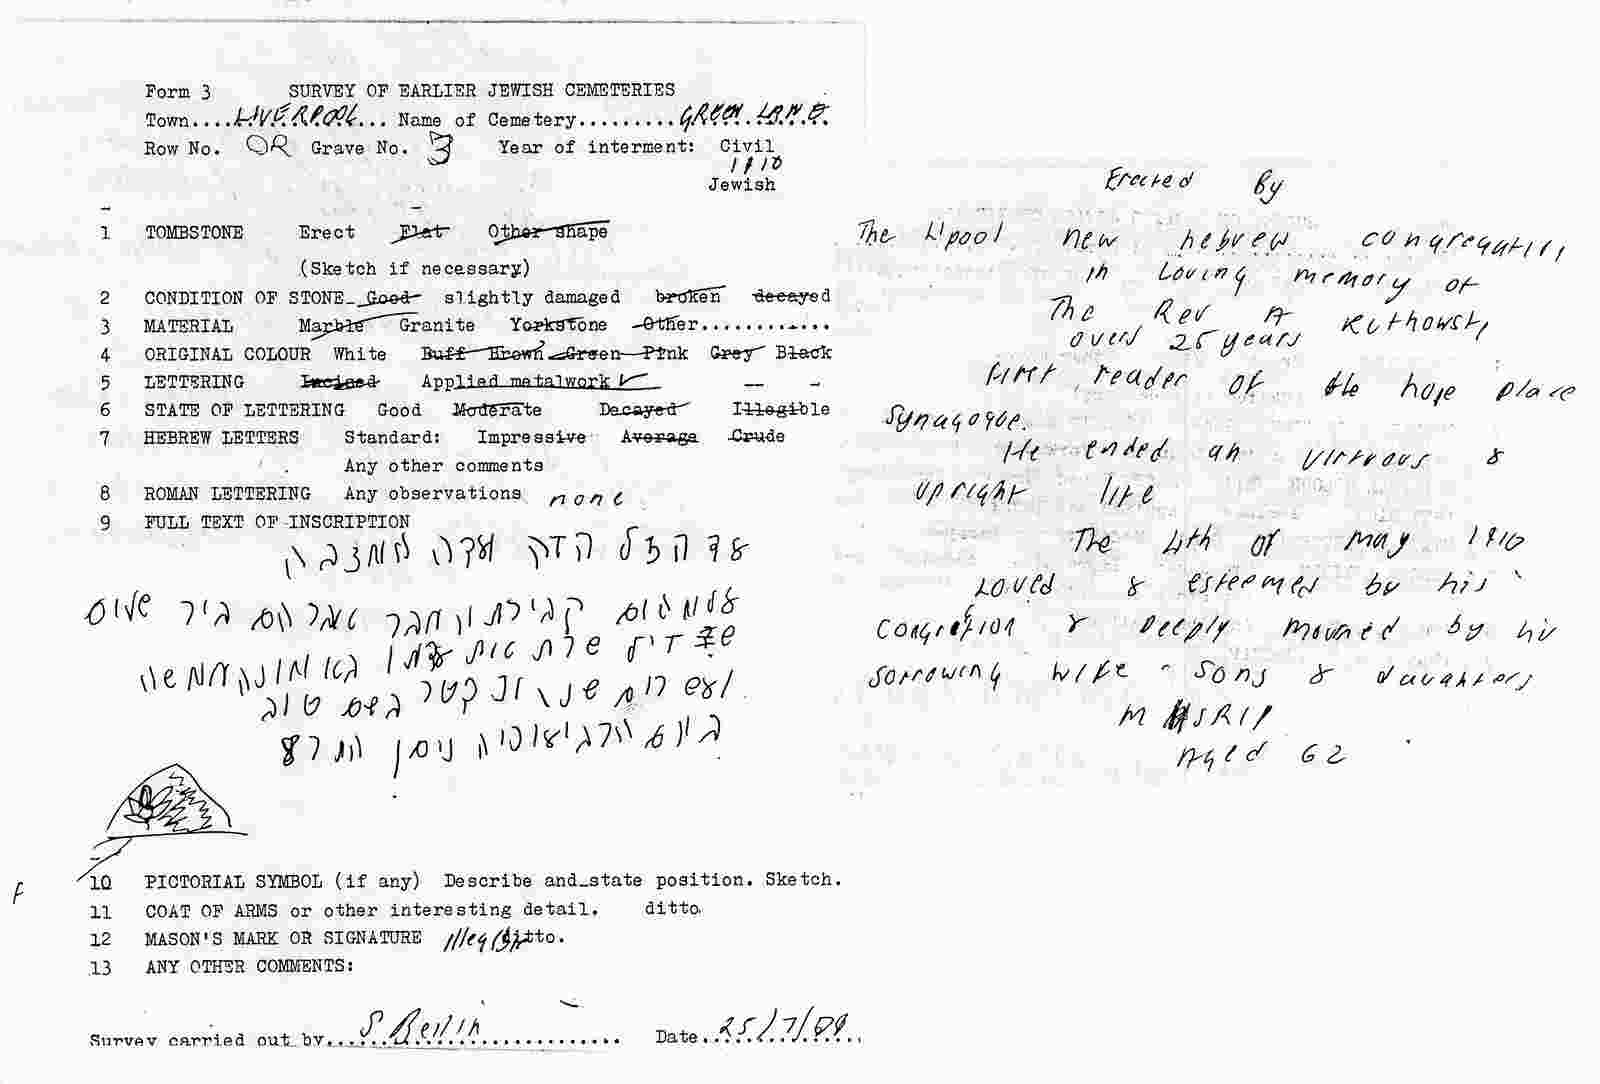 Form 3 SURVEY OF EARLIER JEWISH CEMETERIES
Town....LIVERPOOL... Name of Cemetery.........GREEN LANE
Row No. OR Grave No. 3 Year of interment: Civil
1910
Jewish
1 TOMBSTONE Erect Flat Other shape
(Sketch if necessary)
2 CONDITION OF STONE Good slightly damaged broken decayed
3 MATERIAL Marble Granite Yorkstone Other............
4 ORIGINAL COLOUR White Buff Brown Green Pink Grey Black
5 LETTERING Incised Applied metalwork ✓
6 STATE OF LETTERING Good Moderate Decayed Illegible
7 HEBREW LETTERS Standard: Impressive Average Crude
Any other comments
8 ROMAN LETTERING Any observations none
9 FULL TEXT OF INSCRIPTION
עד הגל הזה ועדה המצבה
שלום
שרת את באמונה חמשה
ועשרים שנה ונקטר בשם טוב
ביום ניסן התרע
10 PICTORIAL SYMBOL (if any) Describe and state position. Sketch.
11 COAT OF ARMS or other interesting detail. ditto.
12 MASON'S MARK OR SIGNATURE ditto.
13 ANY OTHER COMMENTS:
Survey carried out by....S Berlin.... Date..25/7/
F
Erected By
The L'pool new hebrew congregation
in Loving memory of
The Rev A
over 25 years
first reader of the hope place
synagogue.
He ended an virtuous &
upright life
The 4th of may 1910
Loved & esteemed by his
& Deeply mourned by his
sorrowing wife - sons & daughters
M HSRIP
Aged 62